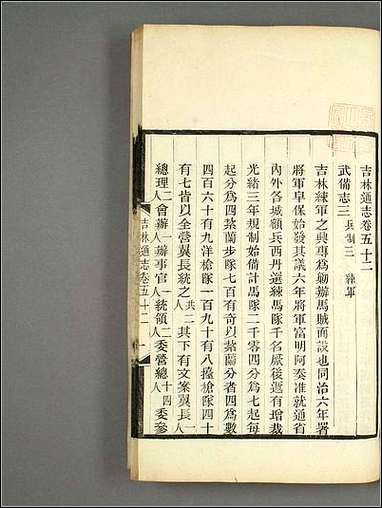 吉林通志卷五十二
武備志三 兵制三 練軍
吉林練軍之興專爲勦辦馬賊而設也同治六年署
將軍皁保始發其議六年將軍富明阿奏准就通省
內外各城額兵西丹選練馬隊千名厥後遞有增裁
光緖三年規制始備計馬隊二千零四分爲七起每
起分爲四紮蘭步隊七百有奇以紮蘭分者四爲數
四百六十有九洋槍隊一百九十有八擡槍隊四十
有七皆以全營翼長統之共二人其下有文案翼長一人
總理一人會辦二人辦事官一人統領一人委營總十四人委參
吉林通志卷五十二 一